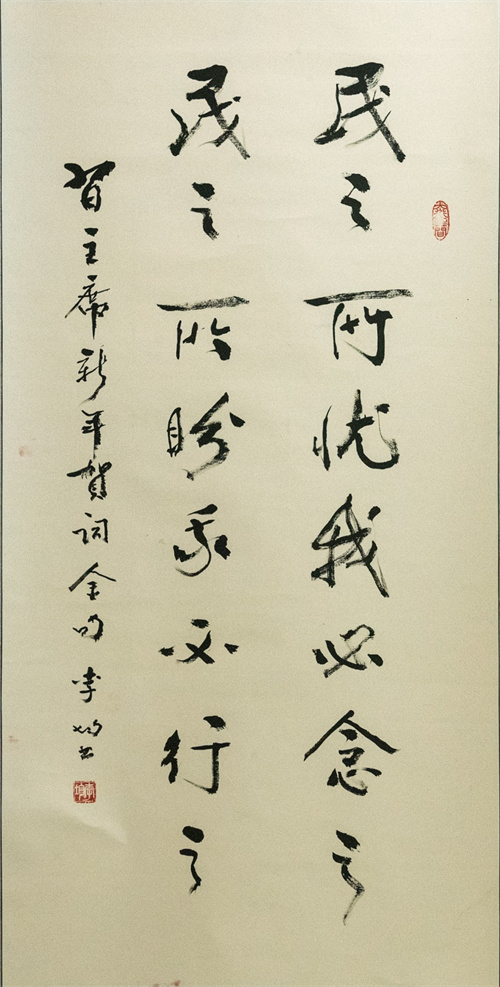 民之所忧我必念之
民之所盼我必行之
習主席新年賀词金句 李